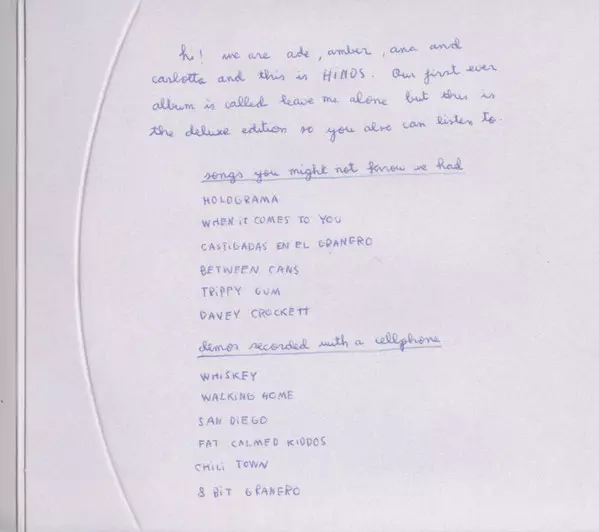 hi! we are ade, amber, ana and
carlotta and this is HINDS. Our first ever
album is called leave me alone but this is
the deluxe edition so you also can listen to.
songs you might not know we had
HOLOGRAMA
WHEN iT COMES TO YOU
CASTIGADAS EN EL GRANERO
BETWEEN CANS
TRiPPY GUM
DAVEY CROCKETT
demos recorded with a cellphone
WHiSKEY
WALKING HOME
SAN DiEGO
FAT CALMED KIDDOS
CHiLi TOWN
8 BiT GRANERO